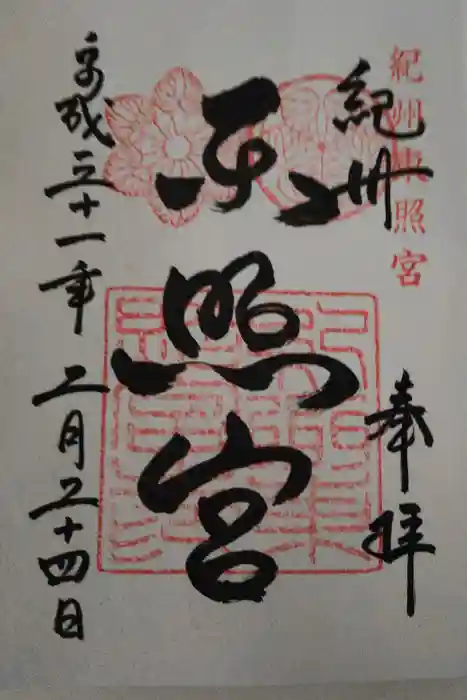 紀州東照宮
紀州
奉拝
东照宮
平成三十一年 二月二十四日